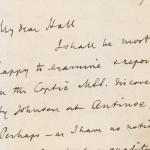 My dear Hall
I shall be most
happy to examine & report
on the Coptic MSS. discove
by Johnson at Antinoe
Perhaps – as I have no noti